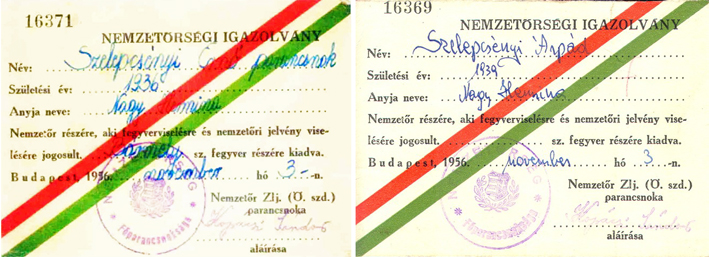 16371
NEMZETŐRSÉGI IGAZOLVÁNY
Név: Szelepcsényi parancsnok
Születési év: 1936
Anyja neve: Nagy Hermina
Nemzetőr részére, aki fegyverviselésre és nemzetőri jelvény vise-
lésére jogosult. sz. fegyver részére kiadva.
Budapest, 1956. november hó 3-n.
Nemzetőr Zlj. (Ö. szd.)
parancsnoka
Főparancsnoksága
aláírása
16369
NEMZETŐRSÉGI IGAZOLVÁNY
Név: Szelepcsényi Árpád
Születési év: 1939
Anyja neve: Nagy Hermina
Nemzetőr részére, aki fegyverviselésre és nemzetőri jelvény vise-
lésére jogosult. sz. fegyver részére kiadva.
Budapest, 1956. november hó 3-n.
Nemzetőr Zlj. (Ö. szd.)
parancsnoka
Főparancsnoksága
aláírása